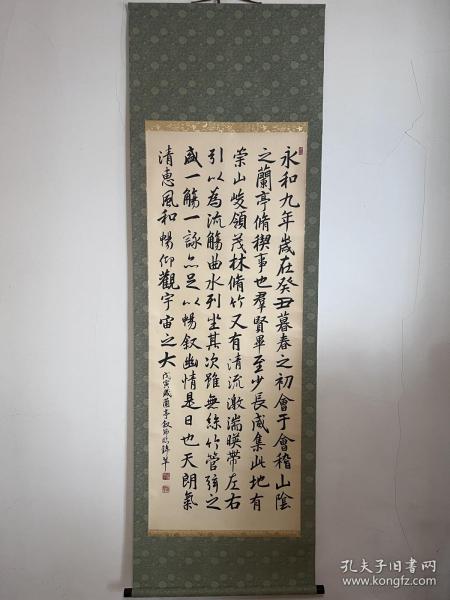 永和九年歲在癸丑暮春之初會于會稽山陰
之蘭亭脩禊事也羣賢畢至少長咸集此地有
崇山峻領茂林脩竹又有清流激湍暎帶左右
引以為流觴曲水列坐其次雖無絲竹管弦之
盛一觴一詠亦足以暢叙幽情是日也天朗氣
清惠風和暢仰觀宇宙之大
戊寅歲蘭亭叙
孔夫子旧书网
www.kongfz.com